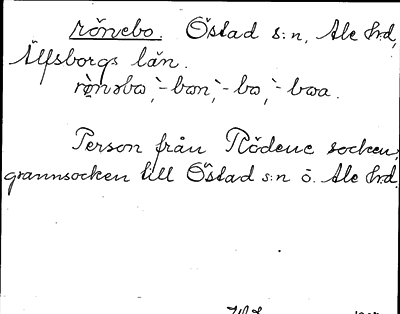 rönebo. Östad s:n, Ale Hrd,
Älfsborgs län.
rönəbo, -bon, -bo, -boa.
Person från Rödene socken,
grannsocken till Östad s:n ö. Ale Hrd.